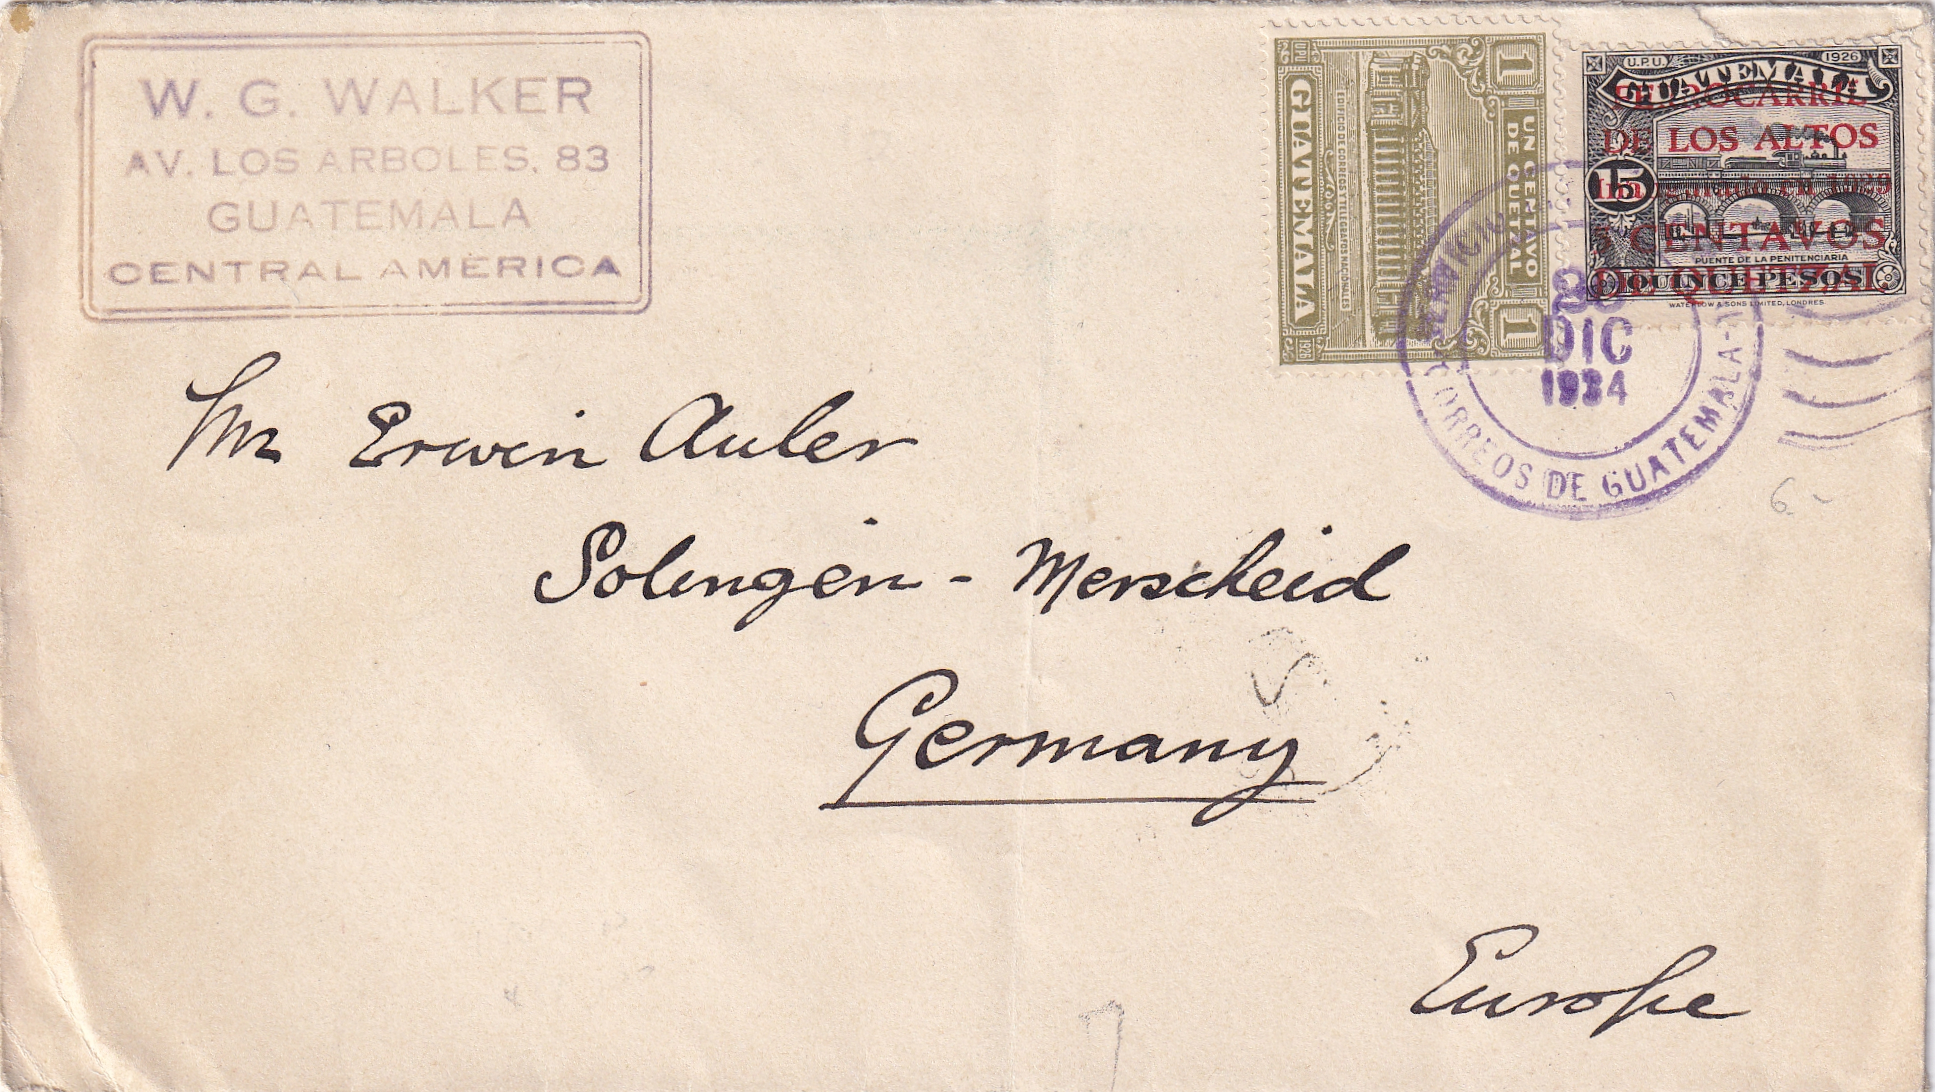 W. G. WALKER
AV. LOS ARBOLES, 83
GUATEMALA
CENTRAL AMERICA
1 1
UN CENTAVO
DE QUETZAL
EDIFICIO DE CORREOS Y TELEGRAFOS NACIONALES
GUATEMALA
UPU 1926
U.P.U. 1926
GUATEMALA
FERROCARRIL
DE LOS ALTOS
15
Inaugurado en 1929
5 CENTAVOS
DE QUETZAL
PUENTE DE LA PENITENCIARIA
QUINCE PESOS
WATERLOW & SONS LIMITED, LONDRES
DIC
1934
CORREOS DE GUATEMALA
Mr Erwin Auler
Solingen - Merscheid
Germany
Europe
6-